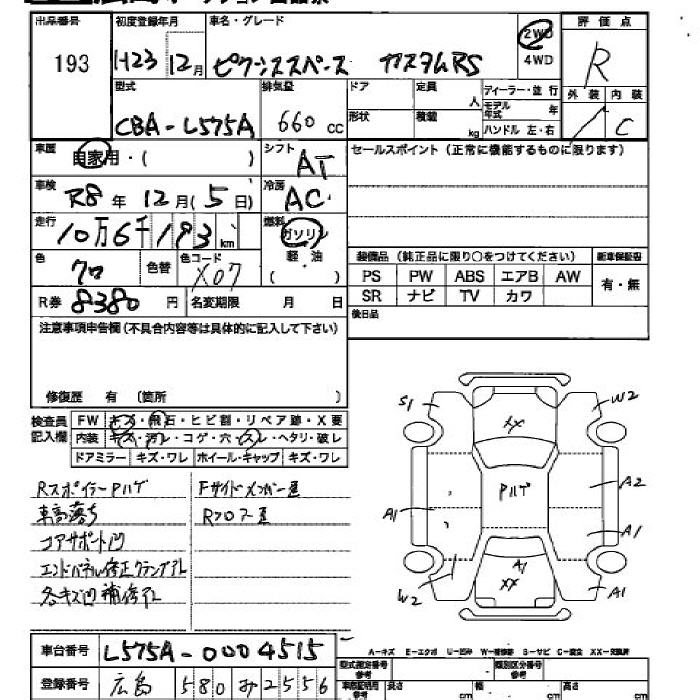 出品番号 初度登録年月 車名・グレード 評価点
193 H23 12月 ピクシススペース カスタムRS 2WD 4WD R
型式 排気量 ドア 定員 人 ディーラー・並行 外装 内装
CBA-L575A 660 cc 形状 積載 kg モデル年式 年 ハンドル 左・右 C
車歴 自家用・( ) シフト AT セールスポイント(正常に機能するものに限ります)
車検 R8年 12月(5日) 冷房 AC
走行 10万6千193km 燃料 ガソリン 軽油 ( )
色 クロ 色替 色コード X07
装備品(純正品に限り○をつけてください) 新車保証書
PS PW ABS エアB AW 有・無
SR ナビ TV カワ
R券 8380円 名変期限 月 日 後日品
注意事項申告欄(不具合内容等は具体的に記入して下さい)
修復歴 有 (箇所 )
検査員記入欄 FW キズ・飛石・ヒビ割・リペア跡・X要
内装 キズ・汚レ・コゲ・穴・スレ・ヘタリ・破レ
ドアミラー キズ・ワレ ホイール・キャップ キズ・ワレ
Rスポイラー Pハゲ Fサイドメンバー歪
車高落ち Rフロアー歪
コアサポート凹
エンドパネル修正クランプアト
各キズ凹補修アト
S1 W2
XX
Pハゲ A2
A1 A1
A1
XX
W2 A1
車台番号 L575A-0004515
A-キズ E-エクボ U-凹み W-補修跡 S-サビ C-腐食 XX-交換済
型式指定番号 参考 類別区分番号 参考
登録番号 広島 580 み 2556
車庫証明用 参考 長さ cm 幅 cm 高さ cm